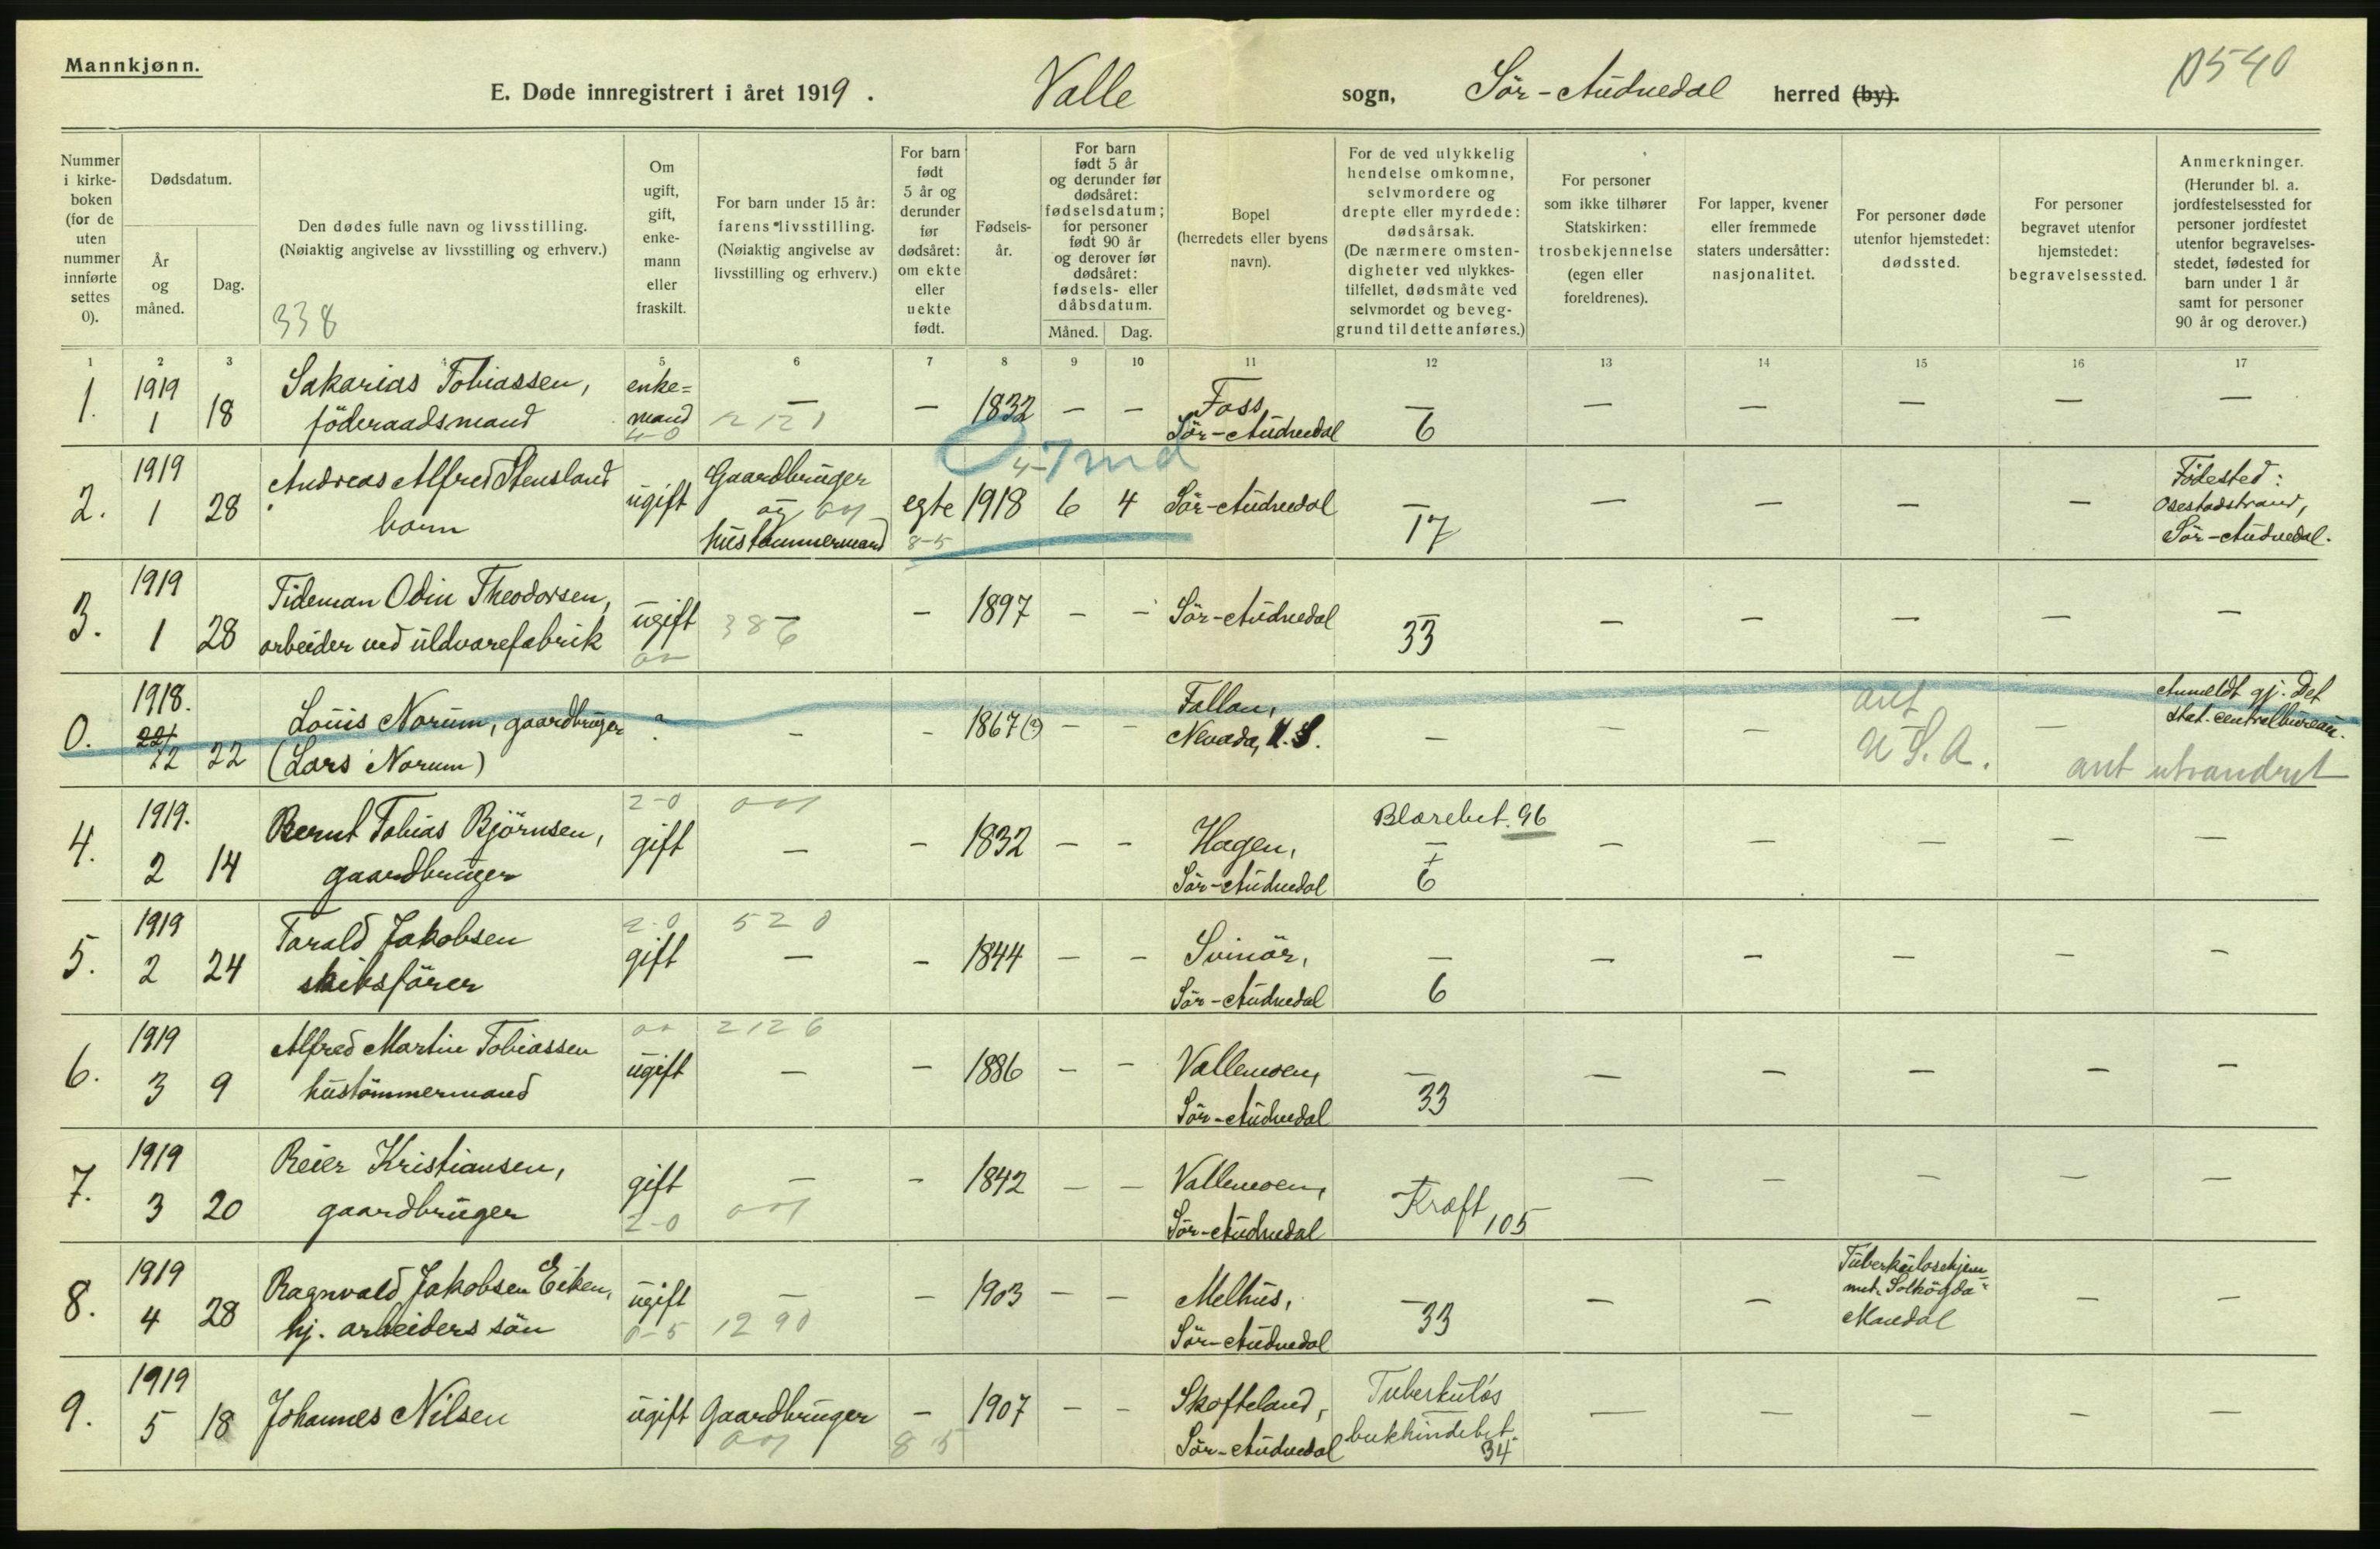 Mannkjønn.
E. Døde innregistrert i året 1919. Valle sogn, Sör-Audnedal herred (by).
0540
Nummer i kirkeboken (for de uten nummer innførte settes 0).
Dødsdatum.
År og måned.
Dag.
Den dødes fulle navn og livsstilling.
(Nøiaktig angivelse av livsstilling og erhverv.)
338
Om ugift, gift, enkemann eller fraskilt.
For barn under 15 år: farens livsstilling. (Nøiaktig angivelse av livsstilling og erhverv.)
For barn født 5 år og derunder før dødsåret: om ekte eller uekte født.
Fødselsår.
For barn født 5 år og derunder før dødsåret: fødselsdatum; for personer født 90 år og derover før dødsåret: fødsels- eller dåbsdatum.
Måned. Dag.
Bopel (herredets eller byens navn).
For de ved ulykkelig hendelse omkomne, selvmordere og drepte eller myrdede: dødsårsak. (De nærmere omstendigheter ved ulykkestilfellet, dødsmåte ved selvmordet og beveggrund til dette anføres.)
For personer som ikke tilhører Statskirken: trosbekjennelse (egen eller foreldrenes).
For lapper, kvener eller fremmede staters undersåtter: nasjonalitet.
For personer døde utenfor hjemstedet: dødssted.
For personer begravet utenfor hjemstedet: begravelsessted.
Anmerkninger. (Herunder bl. a. jordfestelsessted for personer jordfestet utenfor begravelsesstedet, fødested for barn under 1 år samt for personer 90 år og derover.)
1 2 3 4 5 6 7 8 9 10 11 12 13 14 15 16 17
1. 1919 1 18 Sakarias Tobiassen, föderaadsmand enke=mand 4-0 – 2121 – 1832 – – Foss, Sör-Audnedal – 6 – – – – –
0 4-7 md
2. 1919 1 28 Andreas Alfred Stensland barn ugift Gaardbruger og hustömmermand egte 8-5 1918 6 4 Sör-Audnedal – 17 – – – – Födested: Osestadstrand, Sör-Audnedal.
3. 1919 1 28 Tideman Odin Theodorsen, arbeider ved uldvarefabrik ugift – 386 – 1897 – – Sör-Audnedal – 33 – – – – –
0. 1918. 12 22 Louis Norum, gaardbruger (Lars Norum) ? – – 1867(?) – – Fallon, Nevada, U.S. – – – ant U.S.A. – Anmeldt gj. Det stat. centralbureau.
ant utvandret
4. 1919. 2 14 Bernt Tobias Björnsen, gaardbruger 2-0 gift 001 – – 1832 – – Hagen, Sör-Audnedal Blærebet. 96 – + 6 – – – – –
5. 1919 2 24 Tarald Jakobsen skibsförer 2-0 gift 520 – – 1844 – – Svinör, Sör-Audnedal – 6 – – – – –
6. 1919 3 9 Alfred Martin Tobiassen hustömmermand ugift 2126 – – 1886 – – Vallemoen, Sör-Audnedal – 33 – – – – –
7. 1919 3 20 Reier Kristiansen, gaardbruger gift 2-0 – 001 – 1842 – – Vallemoen, Sör-Audnedal Kræft 105 – – – – –
8. 1919 4 28 Ragnvald Jakobsen Eiken, hj. arbeiders sön ugift 0-5 – 1290 – 1903 – – Melhus, Sör-Audnedal – 33 – – Tuberkulosehjemmet Solhögda Mandal – –
9. 1919 5 18 Johannes Nilsen ugift Gaardbruger 001 – 8 5 1907 – – Skofteland, Sör-Audnedal Tuberkuløs bukhindebet. 34 – – – – –